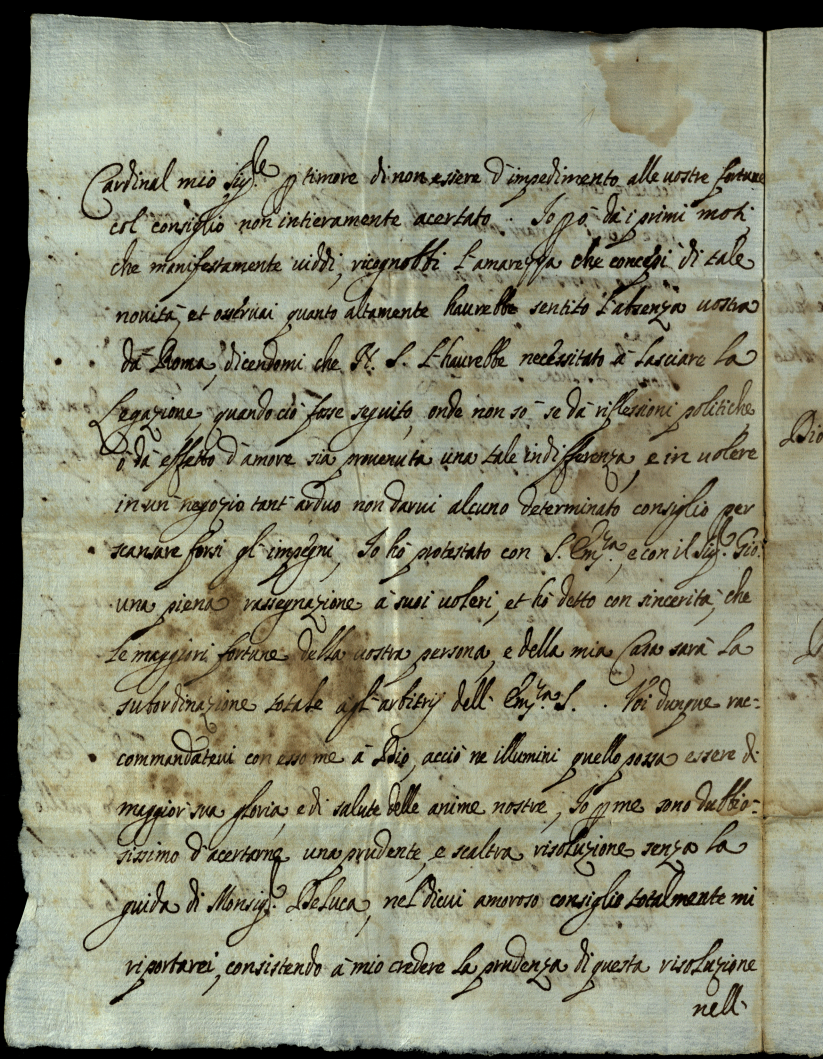 Cardinal mio Sig.le p timore di non essere d'impedimento alle vostre fortune
col consiglio non intieramente acertato. Io pò da i primi moti,
che manifestamente viddi, ricognobbi l'amarezza che concepi di tale
novità, et osservai quanto altamente haurebbe sentito l'absenza vostra
da Roma, dicendomi che N. S. l'haurebbe necèssitato à lasciare la
Legazione, quando ciò fosse seguito, onde non sò se dà riflessioni politiche
ò da effetto d'amore sia provenuta una tale indifferenza, e in volere
in un negozio tant'arduo non darvi alcuno determinato consiglio per
scansare forsi gl'impegni, Io hò protestato con S. Em.za, e con il Sig.r Gio:
una piena rassegnazione à suoi voleri, et hò detto con sincerità, che
le maggiori fortune della vostra persona, e della mia Casa sarà la
subordinazione totale agl'arbitrij dell'Em.za S. . Voi dunque rac=
commandatevi con esso me à Dio, acciò ne illumini quello possa essere di
maggior sua gloria, e di salute delle anime nostre, Io p me sono dubbio=
sissimo d'acertarne una prudente, e scaltra risoluzione senza la
guida di Monsig.r De Luca, nel dicui amoroso consiglio totalmente mi
riportarei, consistendo à mio credere la prudenza di questa risoluzione
nell'
Dio